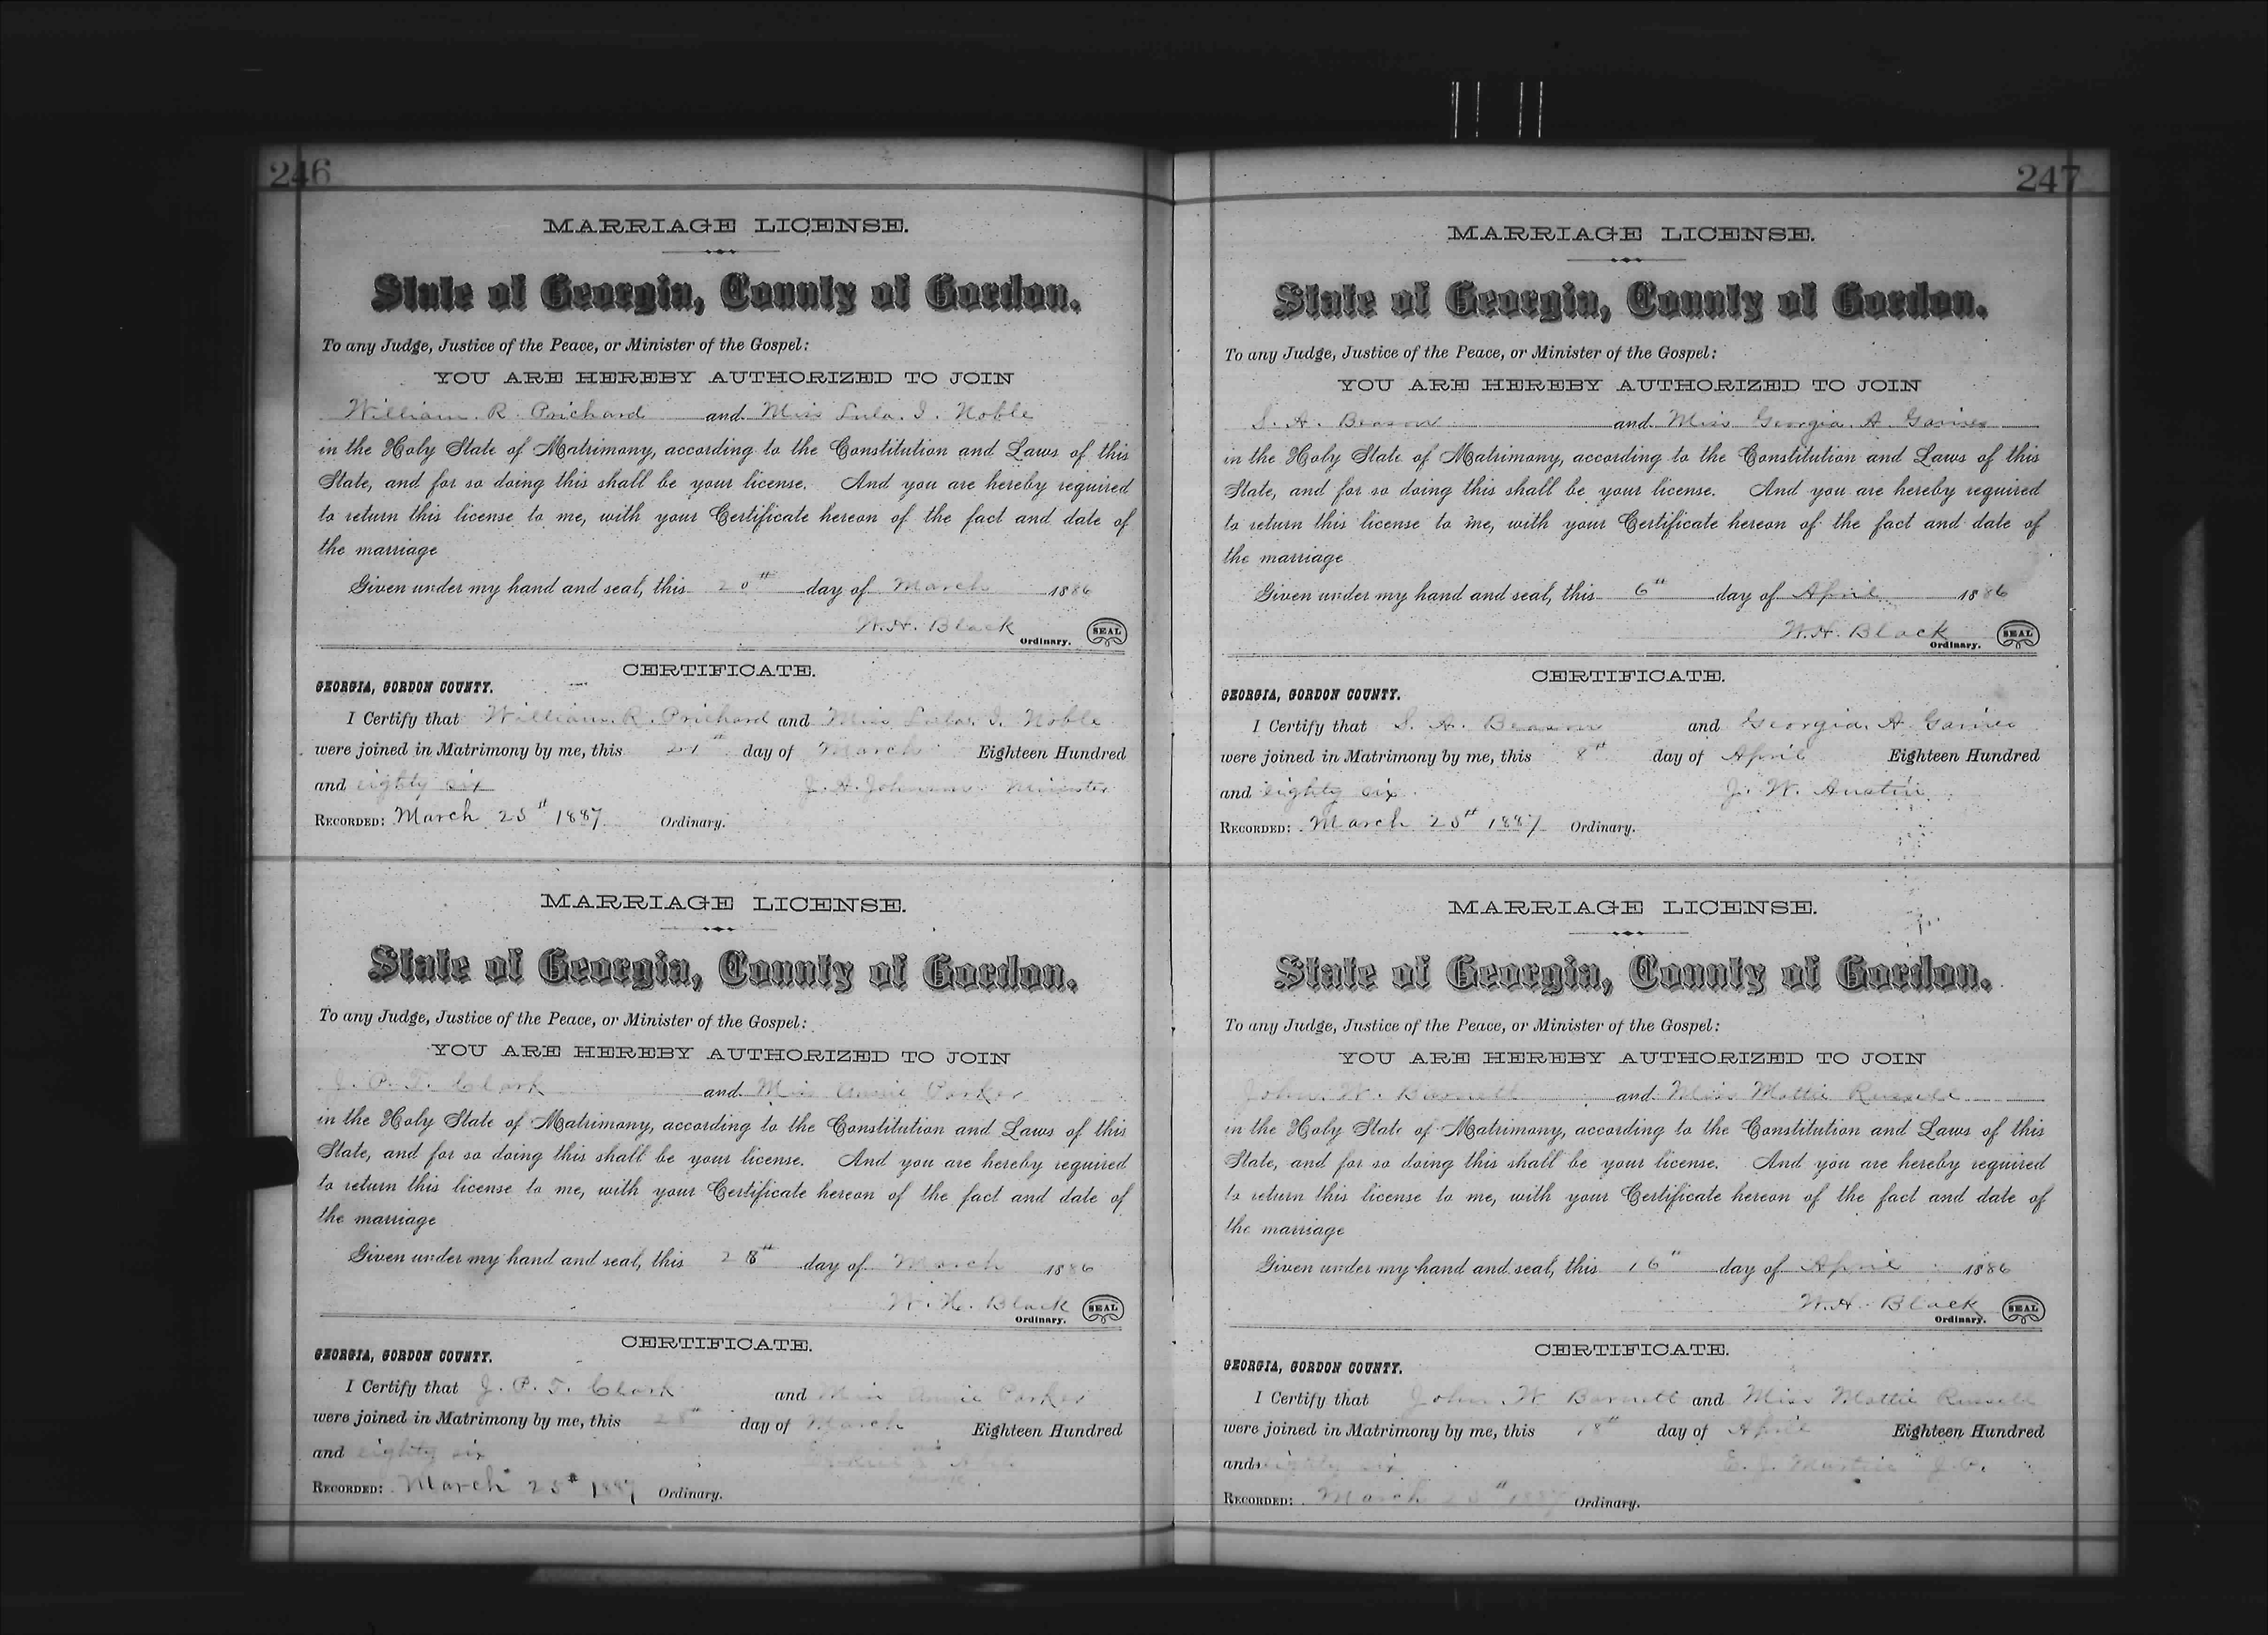 246
MARRIAGE LICENSE.
State of Georgia, County of Gordon.
To any Judge, Justice of the Peace, or Minister of the Gospel:
YOU ARE HEREBY AUTHORIZED TO JOIN
William. R. Prichard and Miss Lula. I. Noble
in the Holy State of Matrimony, according to the Constitution and Laws of this
State, and for so doing this shall be your license. And you are hereby required
to return this license to me, with your Certificate hereon of the fact and date of
the marriage
Given under my hand and seal, this 20th day of March 1886
W. H. Black
Ordinary. SEAL
CERTIFICATE.
GEORGIA, GORDON COUNTY.
I Certify that William. R. Prichard and Miss Lula. I. Noble
were joined in Matrimony by me, this 21st day of March Eighteen Hundred
and eighty six J. A. Johnson Minister
RECORDED: March 25th 1887 Ordinary.
MARRIAGE LICENSE.
State of Georgia, County of Gordon.
To any Judge, Justice of the Peace, or Minister of the Gospel:
YOU ARE HEREBY AUTHORIZED TO JOIN
J. P. T. Clark and Miss Annie Parker
in the Holy State of Matrimony, according to the Constitution and Laws of this
State, and for so doing this shall be your license. And you are hereby required
to return this license to me, with your Certificate hereon of the fact and date of
the marriage
Given under my hand and seal, this 28th day of March 1886
W. H. Black
Ordinary. SEAL
CERTIFICATE.
GEORGIA, GORDON COUNTY.
I Certify that J. P. T. Clark and Miss Annie Parker
were joined in Matrimony by me, this 28th day of March Eighteen Hundred
and eighty six
RECORDED: March 25th 1887 Ordinary.
247
MARRIAGE LICENSE.
State of Georgia, County of Gordon.
To any Judge, Justice of the Peace, or Minister of the Gospel:
YOU ARE HEREBY AUTHORIZED TO JOIN
S. A. Beason and Miss Georgia. A. Gaines
in the Holy State of Matrimony, according to the Constitution and Laws of this
State, and for so doing this shall be your license. And you are hereby required
to return this license to me, with your Certificate hereon of the fact and date of
the marriage
Given under my hand and seal, this 6th day of April 1886
W. H. Black
Ordinary. SEAL
CERTIFICATE.
GEORGIA, GORDON COUNTY.
I Certify that S. A. Beason and Georgia. A. Gaines
were joined in Matrimony by me, this 8th day of April Eighteen Hundred
and eighty six. J. W. Austin
RECORDED: March 25th 1887 Ordinary.
MARRIAGE LICENSE.
State of Georgia, County of Gordon.
To any Judge, Justice of the Peace, or Minister of the Gospel:
YOU ARE HEREBY AUTHORIZED TO JOIN
John. W. Barnett and Miss Mattie Russell
in the Holy State of Matrimony, according to the Constitution and Laws of this
State, and for so doing this shall be your license. And you are hereby required
to return this license to me, with your Certificate hereon of the fact and date of
the marriage
Given under my hand and seal, this 16th day of April 1886
W. H. Black
Ordinary. SEAL
CERTIFICATE.
GEORGIA, GORDON COUNTY.
I Certify that John. W Barnett and Miss Mattie Russell
were joined in Matrimony by me, this 18th day of April Eighteen Hundred
and eighty six E. J.
RECORDED: March 25th 1887 Ordinary.